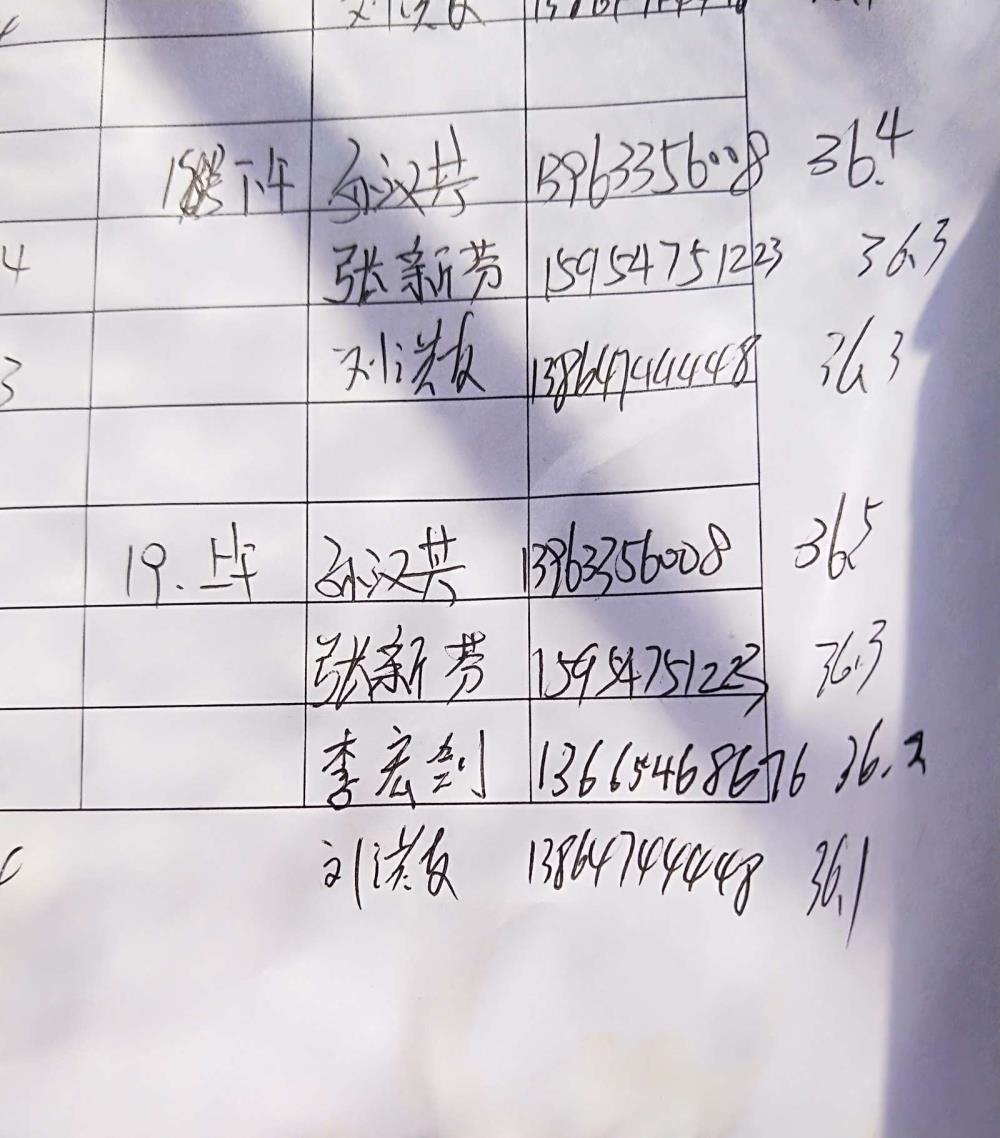 18 下午 孙汉共 13963356008 36.4
4 张新芬 15954751223 36.3
3 刘洪友 13864744448 36.3
19. 上午 孙汉共 13963356008 36.5
张新芬 15954751223 36.3
李宏利 13665468676 36.2
刘洪友 13864744448 36.1